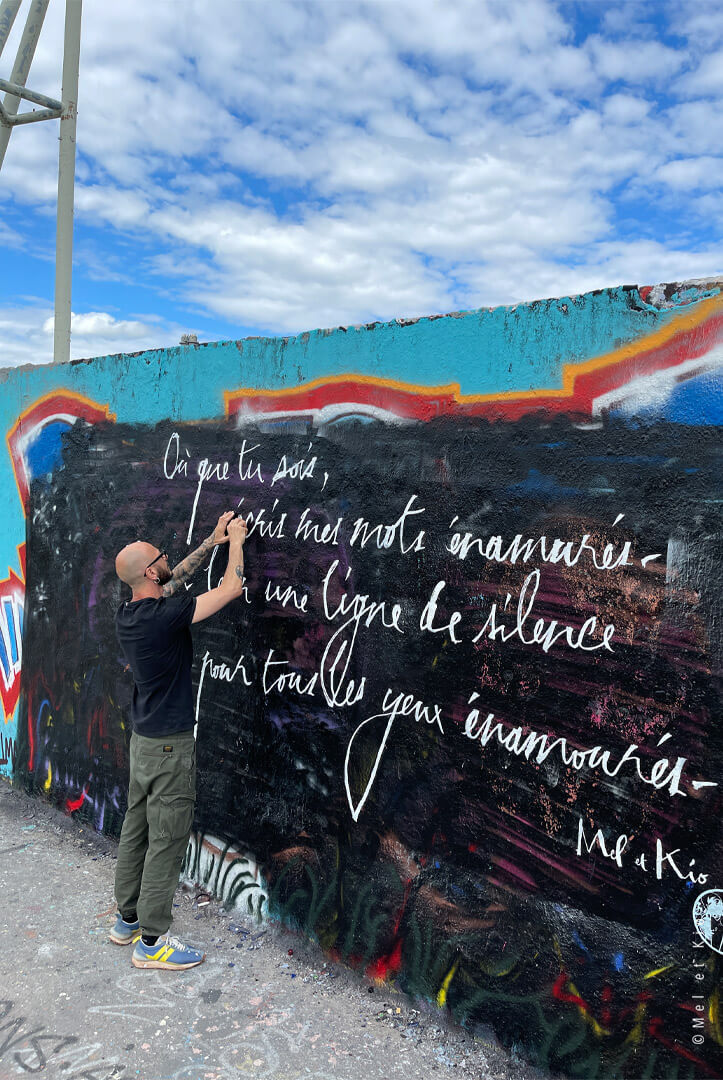 Où que tu sois,
écris mes mots énamourés-
une ligne de silence
pour tous les yeux énamourés-
Mel et Kio
© Mel et K